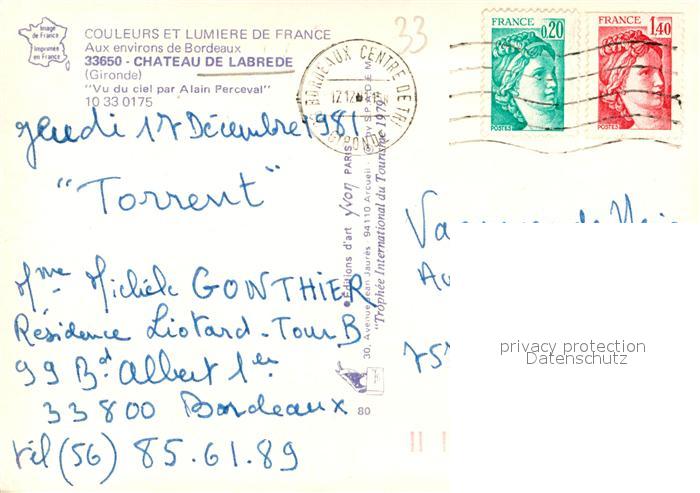 Image
de France
Imprimée
en France
COULEURS ET LUMIERE DE FRANCE
Aux environs de Bordeaux
33650 - CHATEAU DE LABREDE
(Gironde)
"Vu du ciel par Alain Perceval"
10 33 0175
33
BORDEAUX CENTRE DE TRI
GIRONDE
FRANCE
0,20
POSTES
FRANCE
1,40
POSTES
Jeudi 17 Décembre 1981
"Torrent"
Mme Michèle GONTHIER
Résidence Liotard - Tour B
99 Bd Albert 1er
33800 Bordeaux
tél (56) 85.61.89
Editions d'art yvon PARIS
30, Avenue Jean Jaurès 94110 Arcueil
"Trophée International du Tourisme 1979"
80
privacy protection
Datenschutz